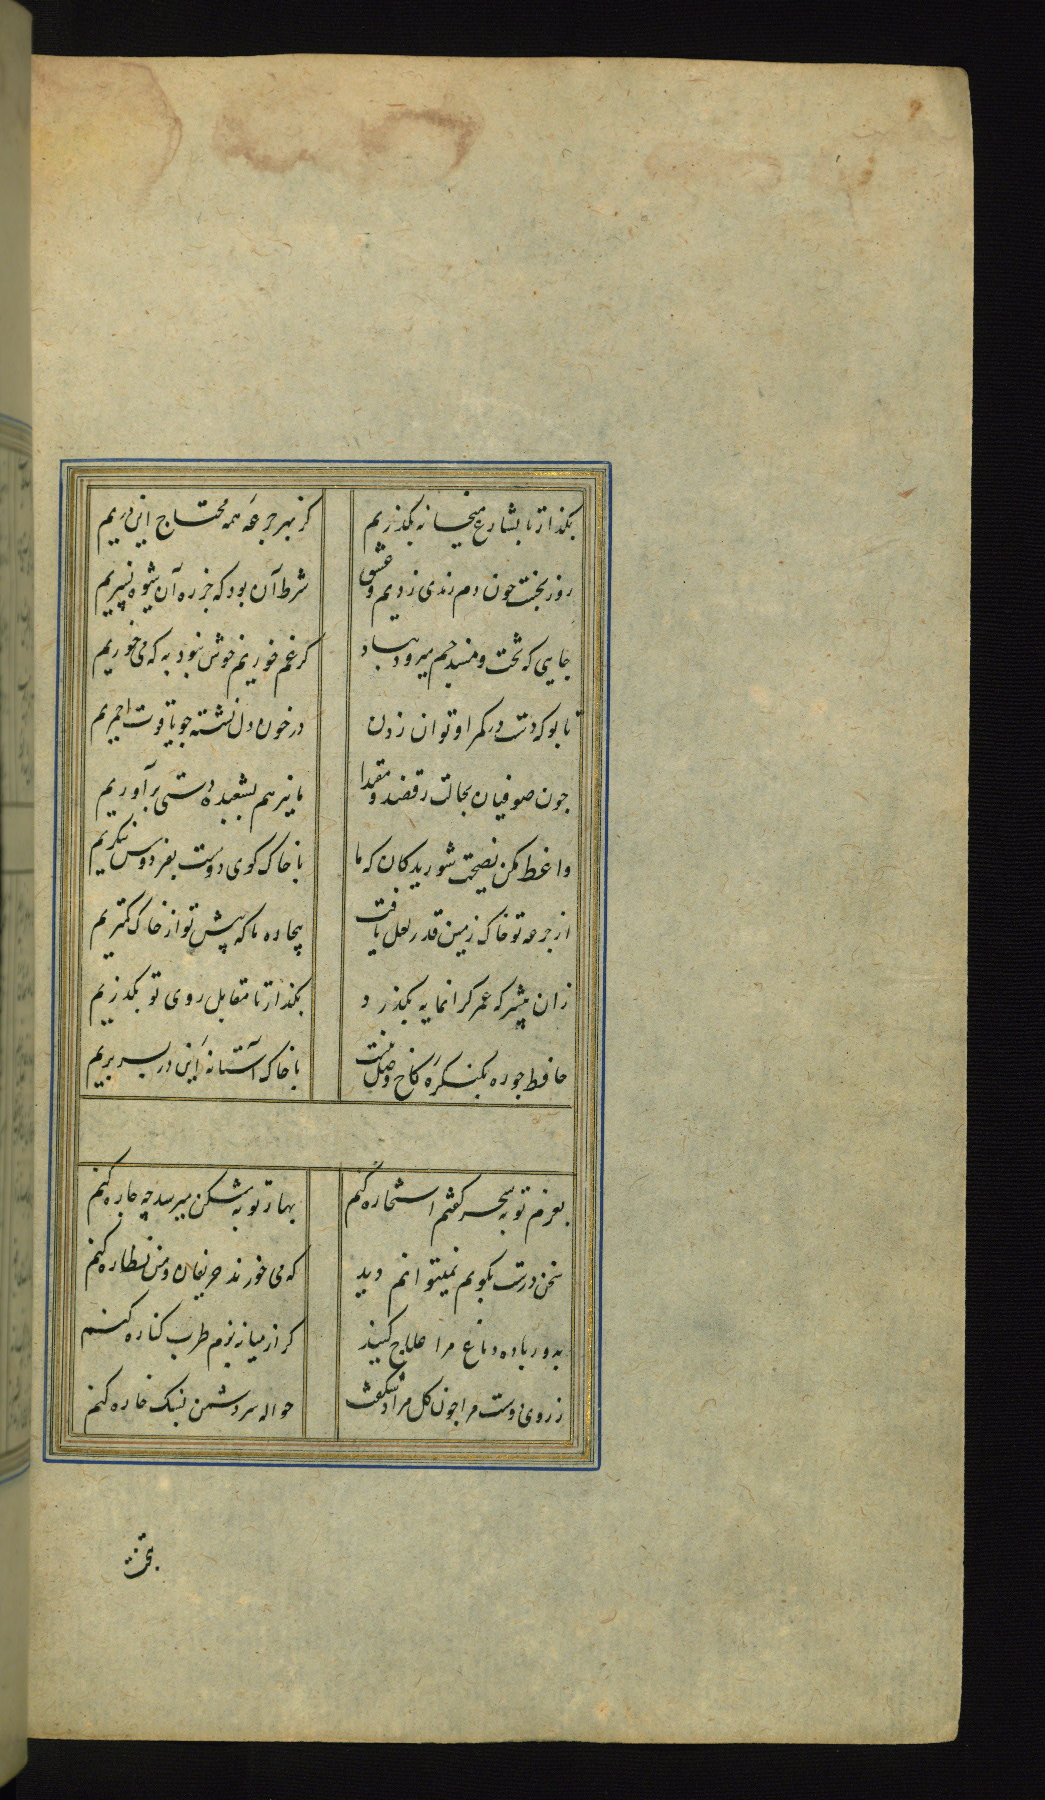 بگذار تا بشارع میخانه بگذریم کز بهر جرعهٔ همه محتاج این دریم
روز نخست چون دم رندی زدیم و عشق شرط آن بود که جز ره آن شیوه نسپریم
جایی که تخت و مسند جم میرود بباد گر غم خوریم خوش نبود به که می خوریم
تا بو که دست در کمر او توان زدن در خون دل نشسته چو یاقوت احمریم
چون صوفیان بحالت رقصند و مقتدا ما نیز هم بشعبده دستی برآوریم
واعظ مکن نصیحت شوریدگان که ما با خاک کوی دوست بفردوس ننگریم
از جرعه تو خاک زمین قدر لعل یافت بیچاره ما که پیش تو از خاک کمتریم
زان پیشتر که عمر گرانمایه بگذرد بگذار تا مقابل روی تو بگذریم
حافظ چو ره بکنگرهٔ کاخ وصل نیست با خاک آستانهٔ این در بسر بریم
بعزم توبه سحر گفتم استخاره کنم بهار توبه شکن میرسد چه چاره کنم
سخن درست بگویم نمیتوانم دید که می خورند حریفان و من نظاره کنم
بدور باده دماغ مرا علاج کنید گر از میانه بزم طرب کناره کنم
ز روی دوست مرا چون گل مراد شکفت حواله سر دشمن بسنگ خاره کنم
بتخت